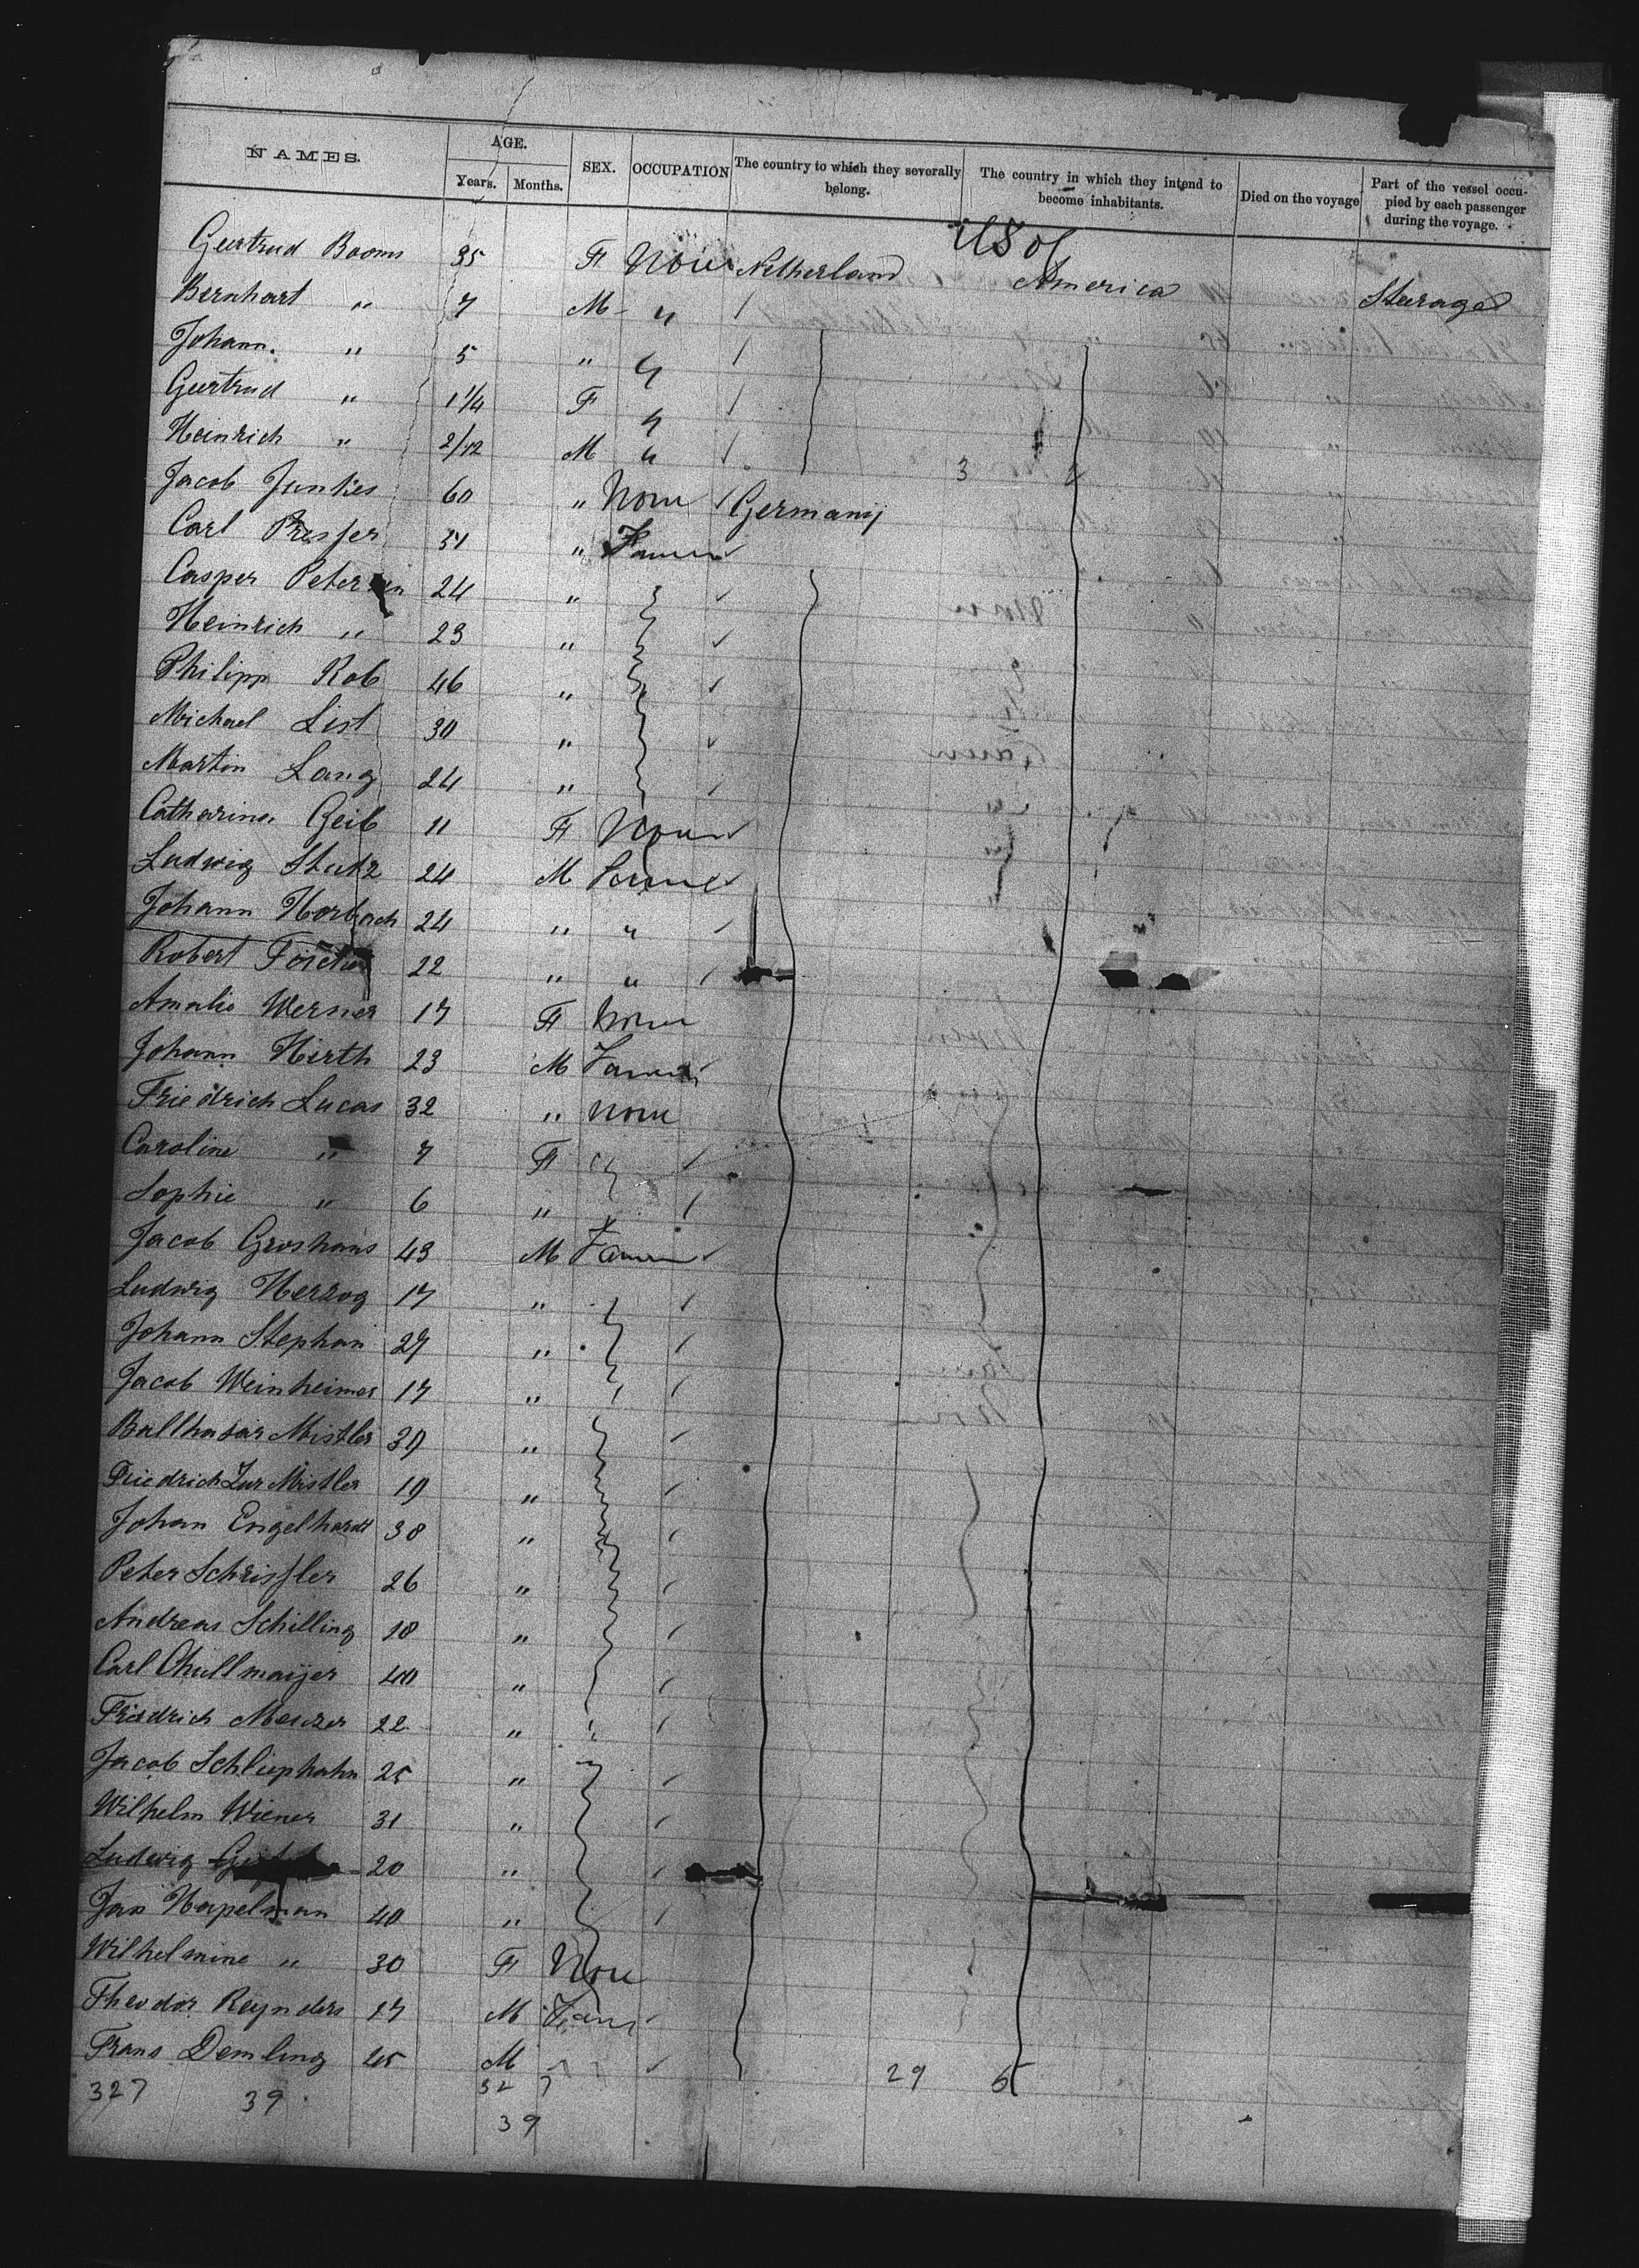 NAMES. AGE. SEX. OCCUPATION The country to which they severally belong. The country in which they intend to become inhabitants. Died on the voyage Part of the vessel occupied by each passenger during the voyage.
Years. Months.
US of
Geertrud Booms 35 F None Netherland America Steerage
Bernhart " 7 M "
Johann. " 5 " "
Geertrud " 1 1/4 F "
Heinrich " 2/12 M "
Jacob Junkes 60 " None Germany
Carl Presser 31 " Farmer
Casper Petersen 24 "
Heinrich " 23 "
Philipp Rob 46 "
Michael List 30 "
Martin Lang 24 "
Catharina Geib 11 F None
Ludwig Stutz 24 M Farmer
Johann Horbach 24 " "
Robert 22 " "
Amalie Werner 17 F None
Johann Hirth 23 M Farmer
Friedrich Lucas 32 " None
Caroline " 7 F
Sophie " 6 "
Jacob Groshans 43 M Farmer
Ludwig Herzog 17 "
Johann Stephan 27 "
Jacob Weinheimer 17 "
Balthasar Mistler 39 "
Friedrich Mistler 19 "
Johan Engelhardt 38 "
Peter Schrissler 26 "
Andreas Schilling 18 "
Carl 40 "
Friedrich 22 "
Jacob Schliephahn 25 "
Wilhelm Wiener 31 "
Ludwig 20 "
Jan Hapelman 40 "
Wilhelmine " 30 F None
Theodor Reynders 17 M Farm
Frans Demling 25 M
327 39 32 7 29 6
39